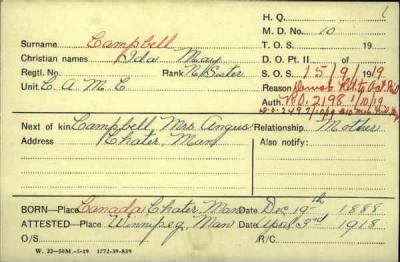 H. Q.
M. D. No. 10
Surname Campbell T. O. S. 19
Christian names Ida May D. O. Pt. II of
Regtl. No. Rank N/Sister S. O. S. 15/9/1919
Unit C A M C Reason
Auth. R.O. 2198 1/10/19
Next of kin Campbell Mrs Angus Relationship Mother
Address Chater, Man Also notify:
BORN—Place Canada Chater, Man Date Dec 19th 1888
ATTESTED—Place Winnipeg, Man Date April 3rd 1918
O/S R/C
W. 22–50M.–5-19 1772-39-839